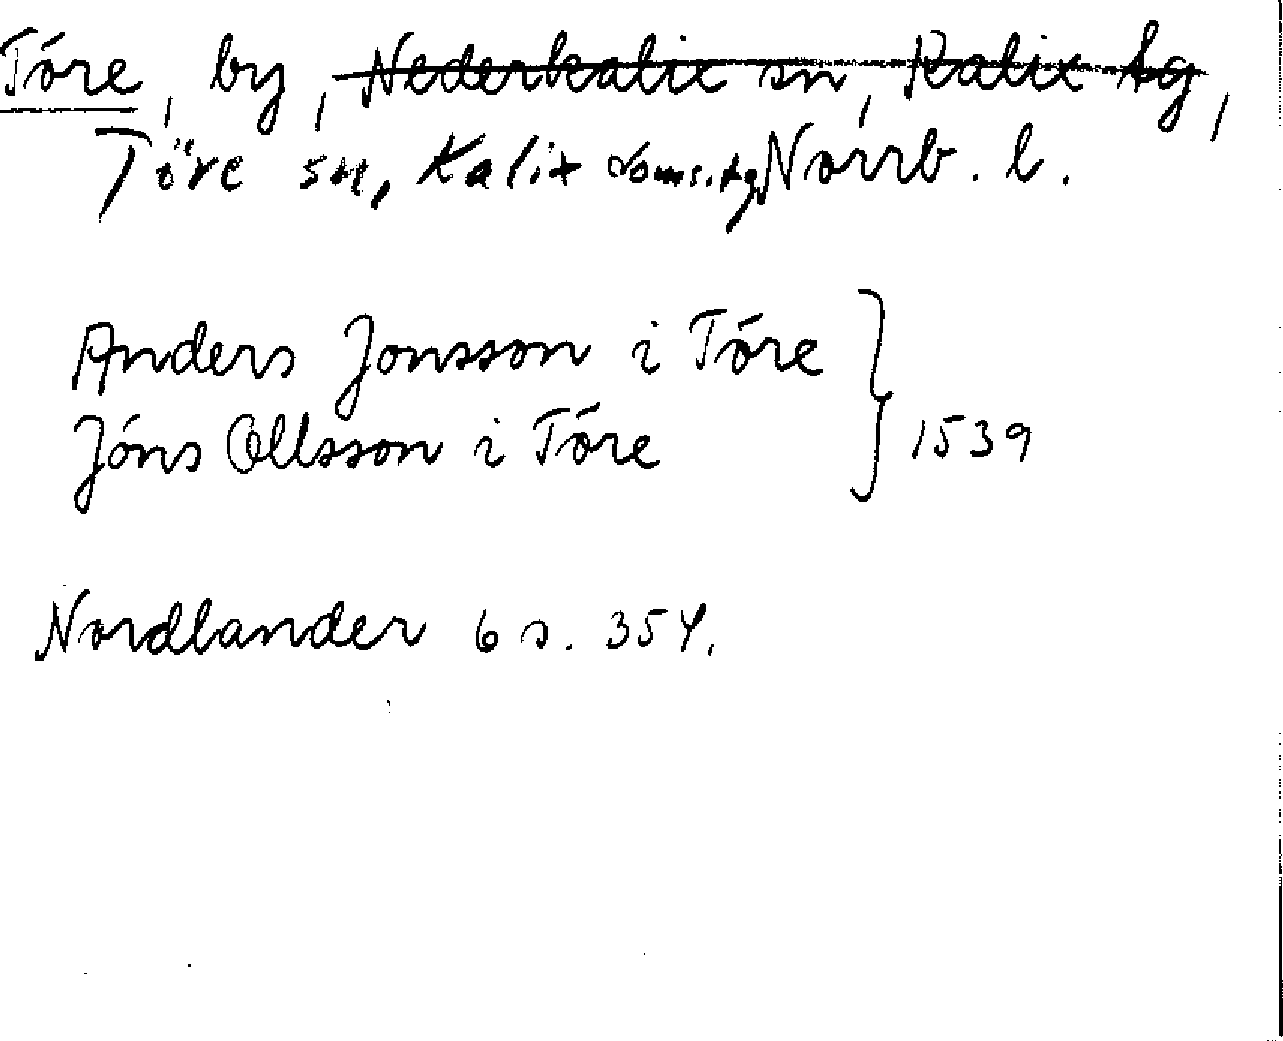 Töre, by, Nederkalix sn, Kalix tg,
Töre sn, Kalix doms.tg Norrb. l.
Anders Jonsson i Töre } 1539
Jöns Ollsson i Töre
Nordlander 6 s. 354.